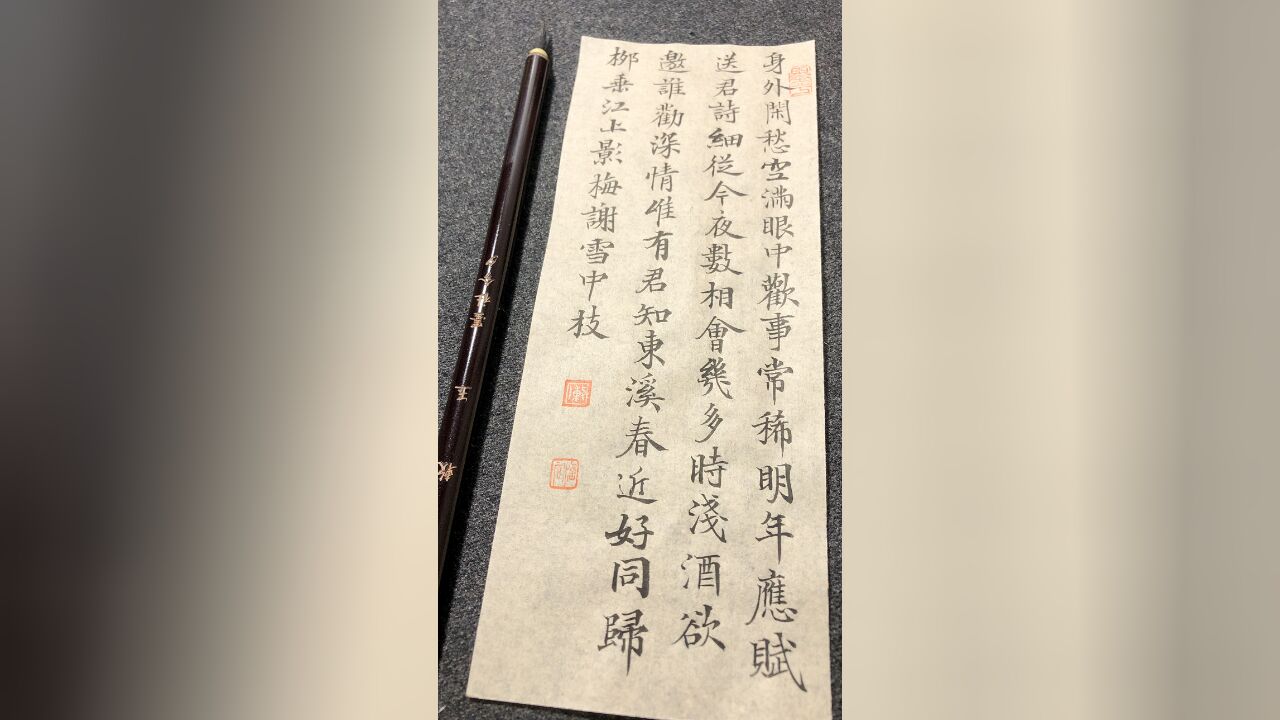 身外閑愁空滿眼中歡事常稀明年應賦
送君詩細從今夜數相會幾多時淺酒欲
邀誰勸深情唯有君知東溪春近好同歸
柳垂江上影梅謝雪中枝